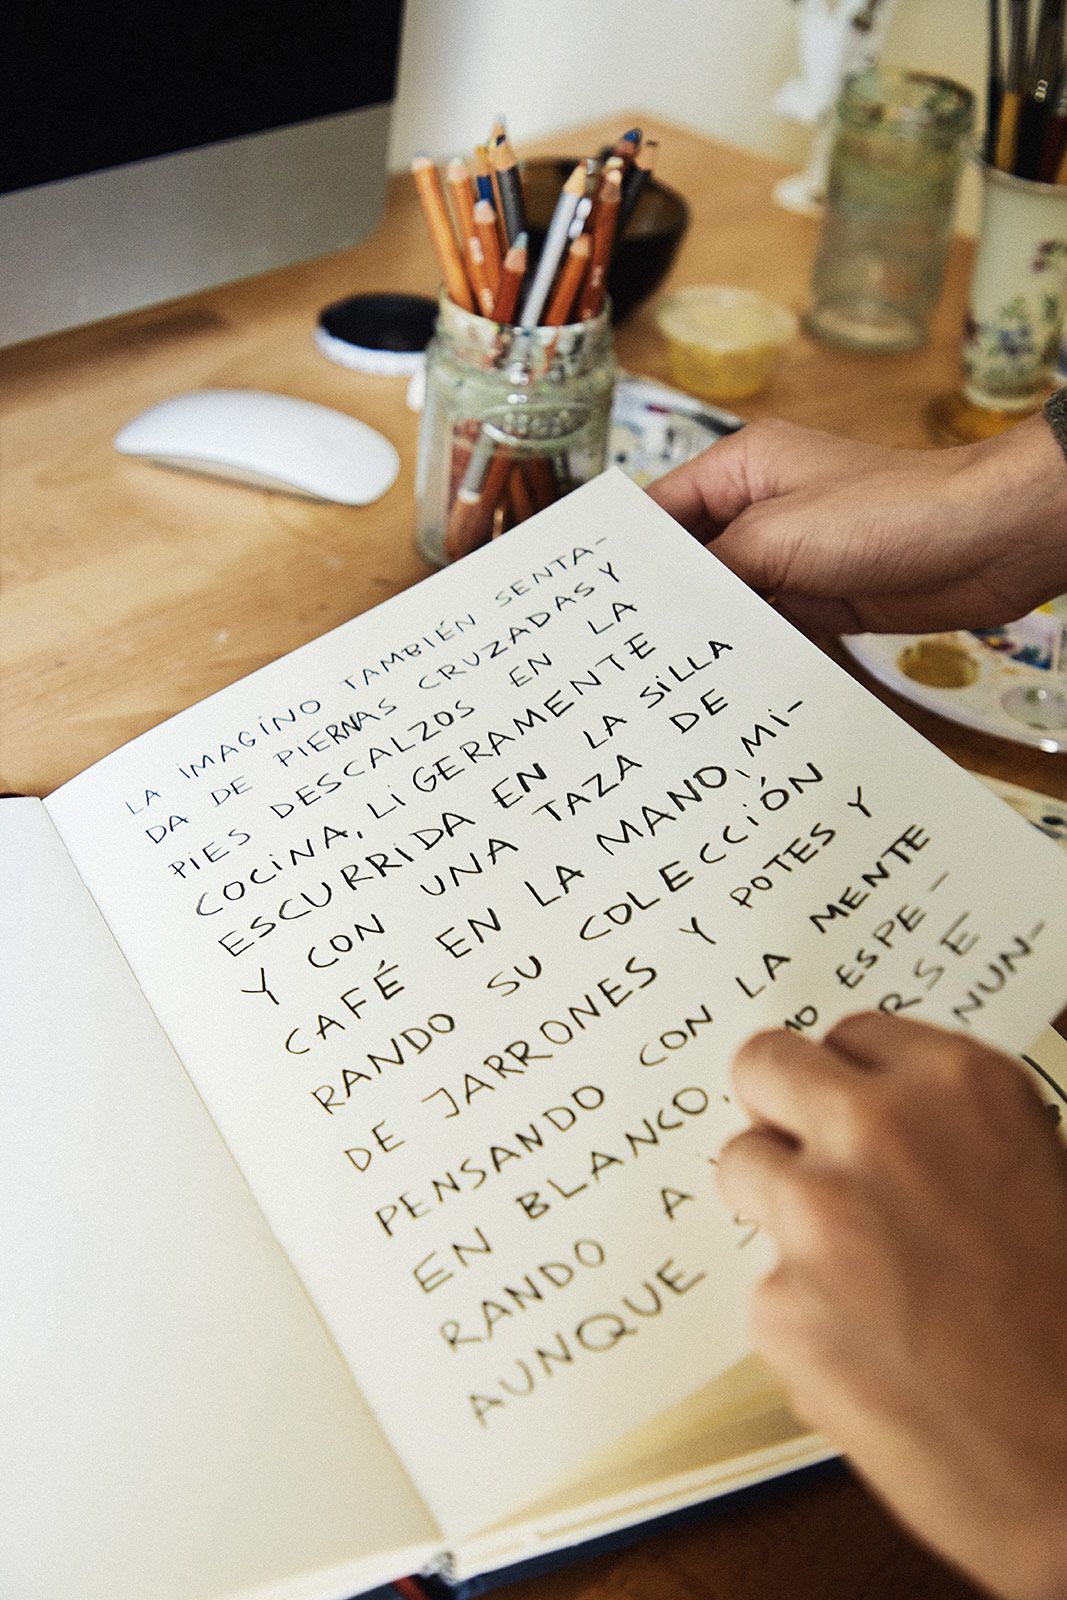 LA IMAGINO TAMBIÉN SENTA-
DA DE PIERNAS CRUZADAS Y
PIES DESCALZOS EN LA
COCINA, LIGERAMENTE
ESCURRIDA EN LA SILLA
Y CON UNA TAZA DE
CAFÉ EN LA MANO, MI-
RANDO SU COLECCIÓN
DE JARRONES Y POTES Y
PENSANDO CON LA MENTE
EN BLANCO, ESPE-
RANDO A
AUNQUE NUN-